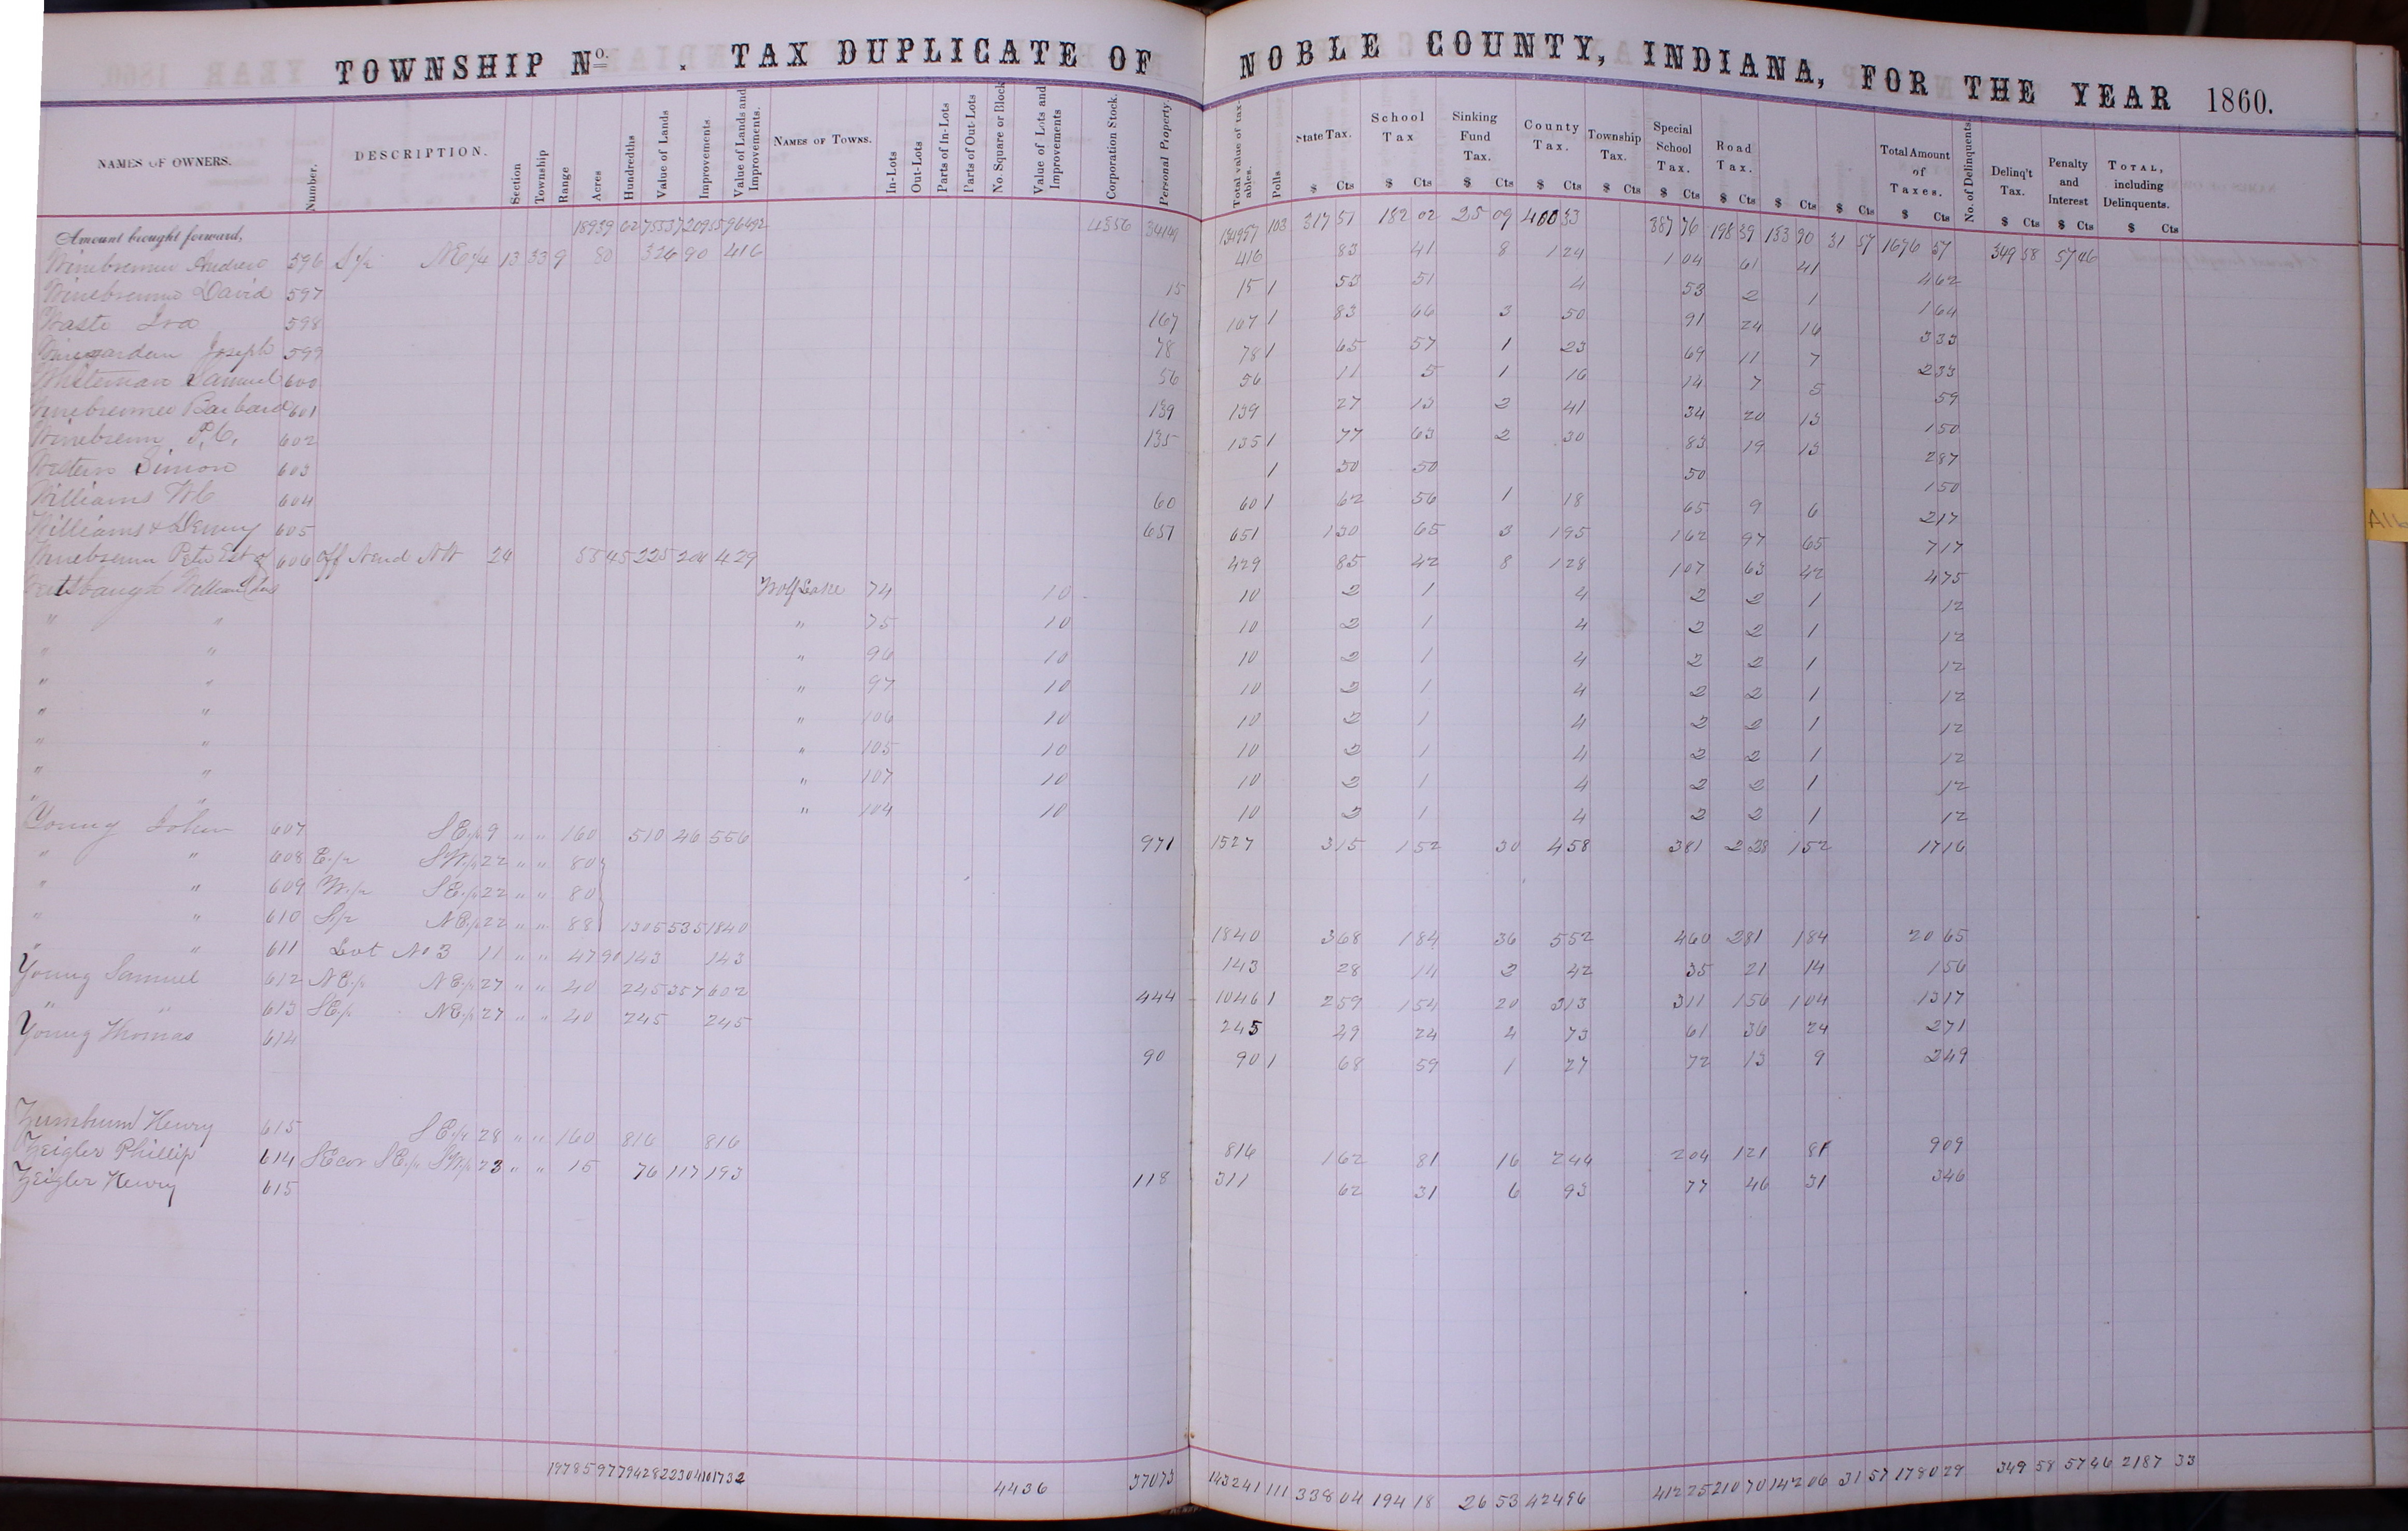 TOWNSHIP No. . TAX DUPLICATE OF NOBLE COUNTY, INDIANA, FOR THE YEAR 1860.
NAMES OF OWNERS. Number. DESCRIPTION. Section Township Range Acres Hundredths Value of Lands Improvements Value of Lands and Improvements. NAMES OF TOWNS. In-Lots Out-Lots Parts of In-Lots Parts of Out-Lots No. Square or Block Value of Lots and Improvements Corporation Stock. Personal Property. Total value of taxables. Polls State Tax. School Tax Sinking Fund Tax. County Tax. Township Tax. Special School Tax. Road Tax. Total Amount of Taxes. No. of Delinquents Delinq't Tax. Penalty and Interest TOTAL, including Delinquents.
$ Cts $ Cts $ Cts $ Cts $ Cts $ Cts $ Cts $ Cts $ Cts $ Cts $ Cts $ Cts $ Cts
Amount brought forward, 18939 62 75537 20955 96492 4356 34149 134997 103 317 51 182 02 25 09 400 33 387 76 198 39 133 90 31 57 1676 57 349 58 57 46
Winebrenner Andrew 596 S 1/2 NE 1/4 13 33 9 80 326 90 416 416 83 41 8 124 1 04 61 41 4 62
Winebrenner David 597 15 15 1 53 51 4 53 2 1 1 64
Waste Ira 598 167 167 1 83 66 3 50 91 24 16 3 33
Winegarden Joseph 599 78 78 1 65 57 1 23 69 11 7 2 33
Whiteman Samuel 600 56 56 11 5 1 16 14 7 5 59
Winebrenner Barbara 601 139 139 27 13 2 41 34 20 13 1 50
Winebrenn P. C. 602 135 135 1 77 63 2 30 83 19 13 2 87
Western Simon 603 1 50 50 50 1 50
Williams W C 604 60 60 1 62 56 1 18 65 9 6 2 17
Williams & Denny 605 651 651 1 30 65 3 1 95 1 62 97 65 7 17
Winebrenn Peter Est of 606 off N end NW 24 55 45 225 204 429 429 85 42 8 1 28 1 07 63 42 4 75
William Wolf Lake 74 10 10 2 1 4 2 2 1 12
" " " 75 10 10 2 1 4 2 2 1 12
" " " 96 10 10 2 1 4 2 2 1 12
" " " 97 10 10 2 1 4 2 2 1 12
" " " 106 10 10 2 1 4 2 2 1 12
" " " 105 10 10 2 1 4 2 2 1 12
" " " 107 10 10 2 1 4 2 2 1 12
" " " 104 10 10 2 1 4 2 2 1 12
Young John 607 SE 1/4 9 " " 160 510 46 556 971 1527 3 15 1 52 30 4 58 3 81 2 28 1 52 17 16
" " 608 E 1/2 SW 1/4 22 " " 80
" " 609 W 1/2 SE 1/4 22 " " 80
" " 610 S 1/2 NE 1/4 22 " " 88 1305 535 1840 1840 3 68 1 84 36 5 52 4 60 2 81 1 84 20 65
" " 611 Lot No 3 11 " " 47 90 143 143 143 28 14 2 42 35 21 14 1 56
Young Samuel 612 NE 1/4 NE 1/4 27 " " 40 245 357 602 444 1046 1 2 59 1 54 20 3 13 3 11 1 56 1 04 13 17
" " 613 SE 1/4 NE 1/4 27 " " 40 245 245 245 49 24 4 73 61 36 24 2 71
Young Thomas 614 90 90 1 68 59 1 27 72 13 9 2 49
Zumbrum Henry 615 SE 1/4 28 " " 160 816 816 816 1 62 81 16 2 44 2 04 1 21 81 9 09
Zeigler Phillip 614 SE cor SE 1/4 SW 1/4 23 " " 15 76 117 193 118 311 62 31 6 93 77 46 31 3 46
Zeigler Henry 615
19785 97 79428 22304 101732 4436 37073 143241 111 338 04 194 18 26 53 424 96 412 25 210 70 142 06 31 57 1780 29 349 58 57 46 2187 33
A16